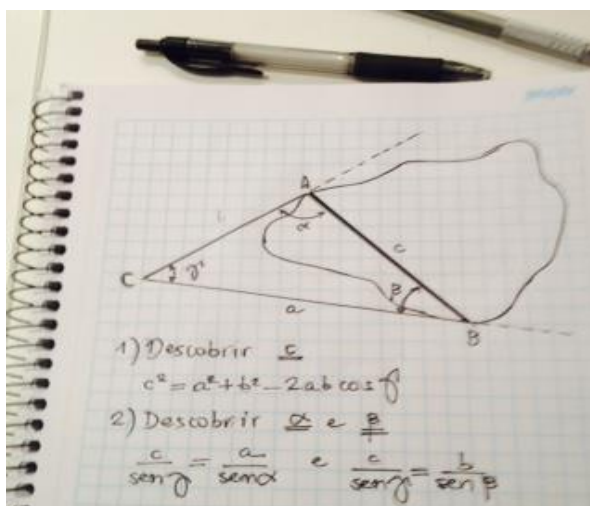 A
α
c
C
γ
β
a
B
1) Descobrir c
c² = a² + b² - 2ab cos γ
2) Descobrir α e β
c/senγ = a/senα e c/senγ = b/senβ